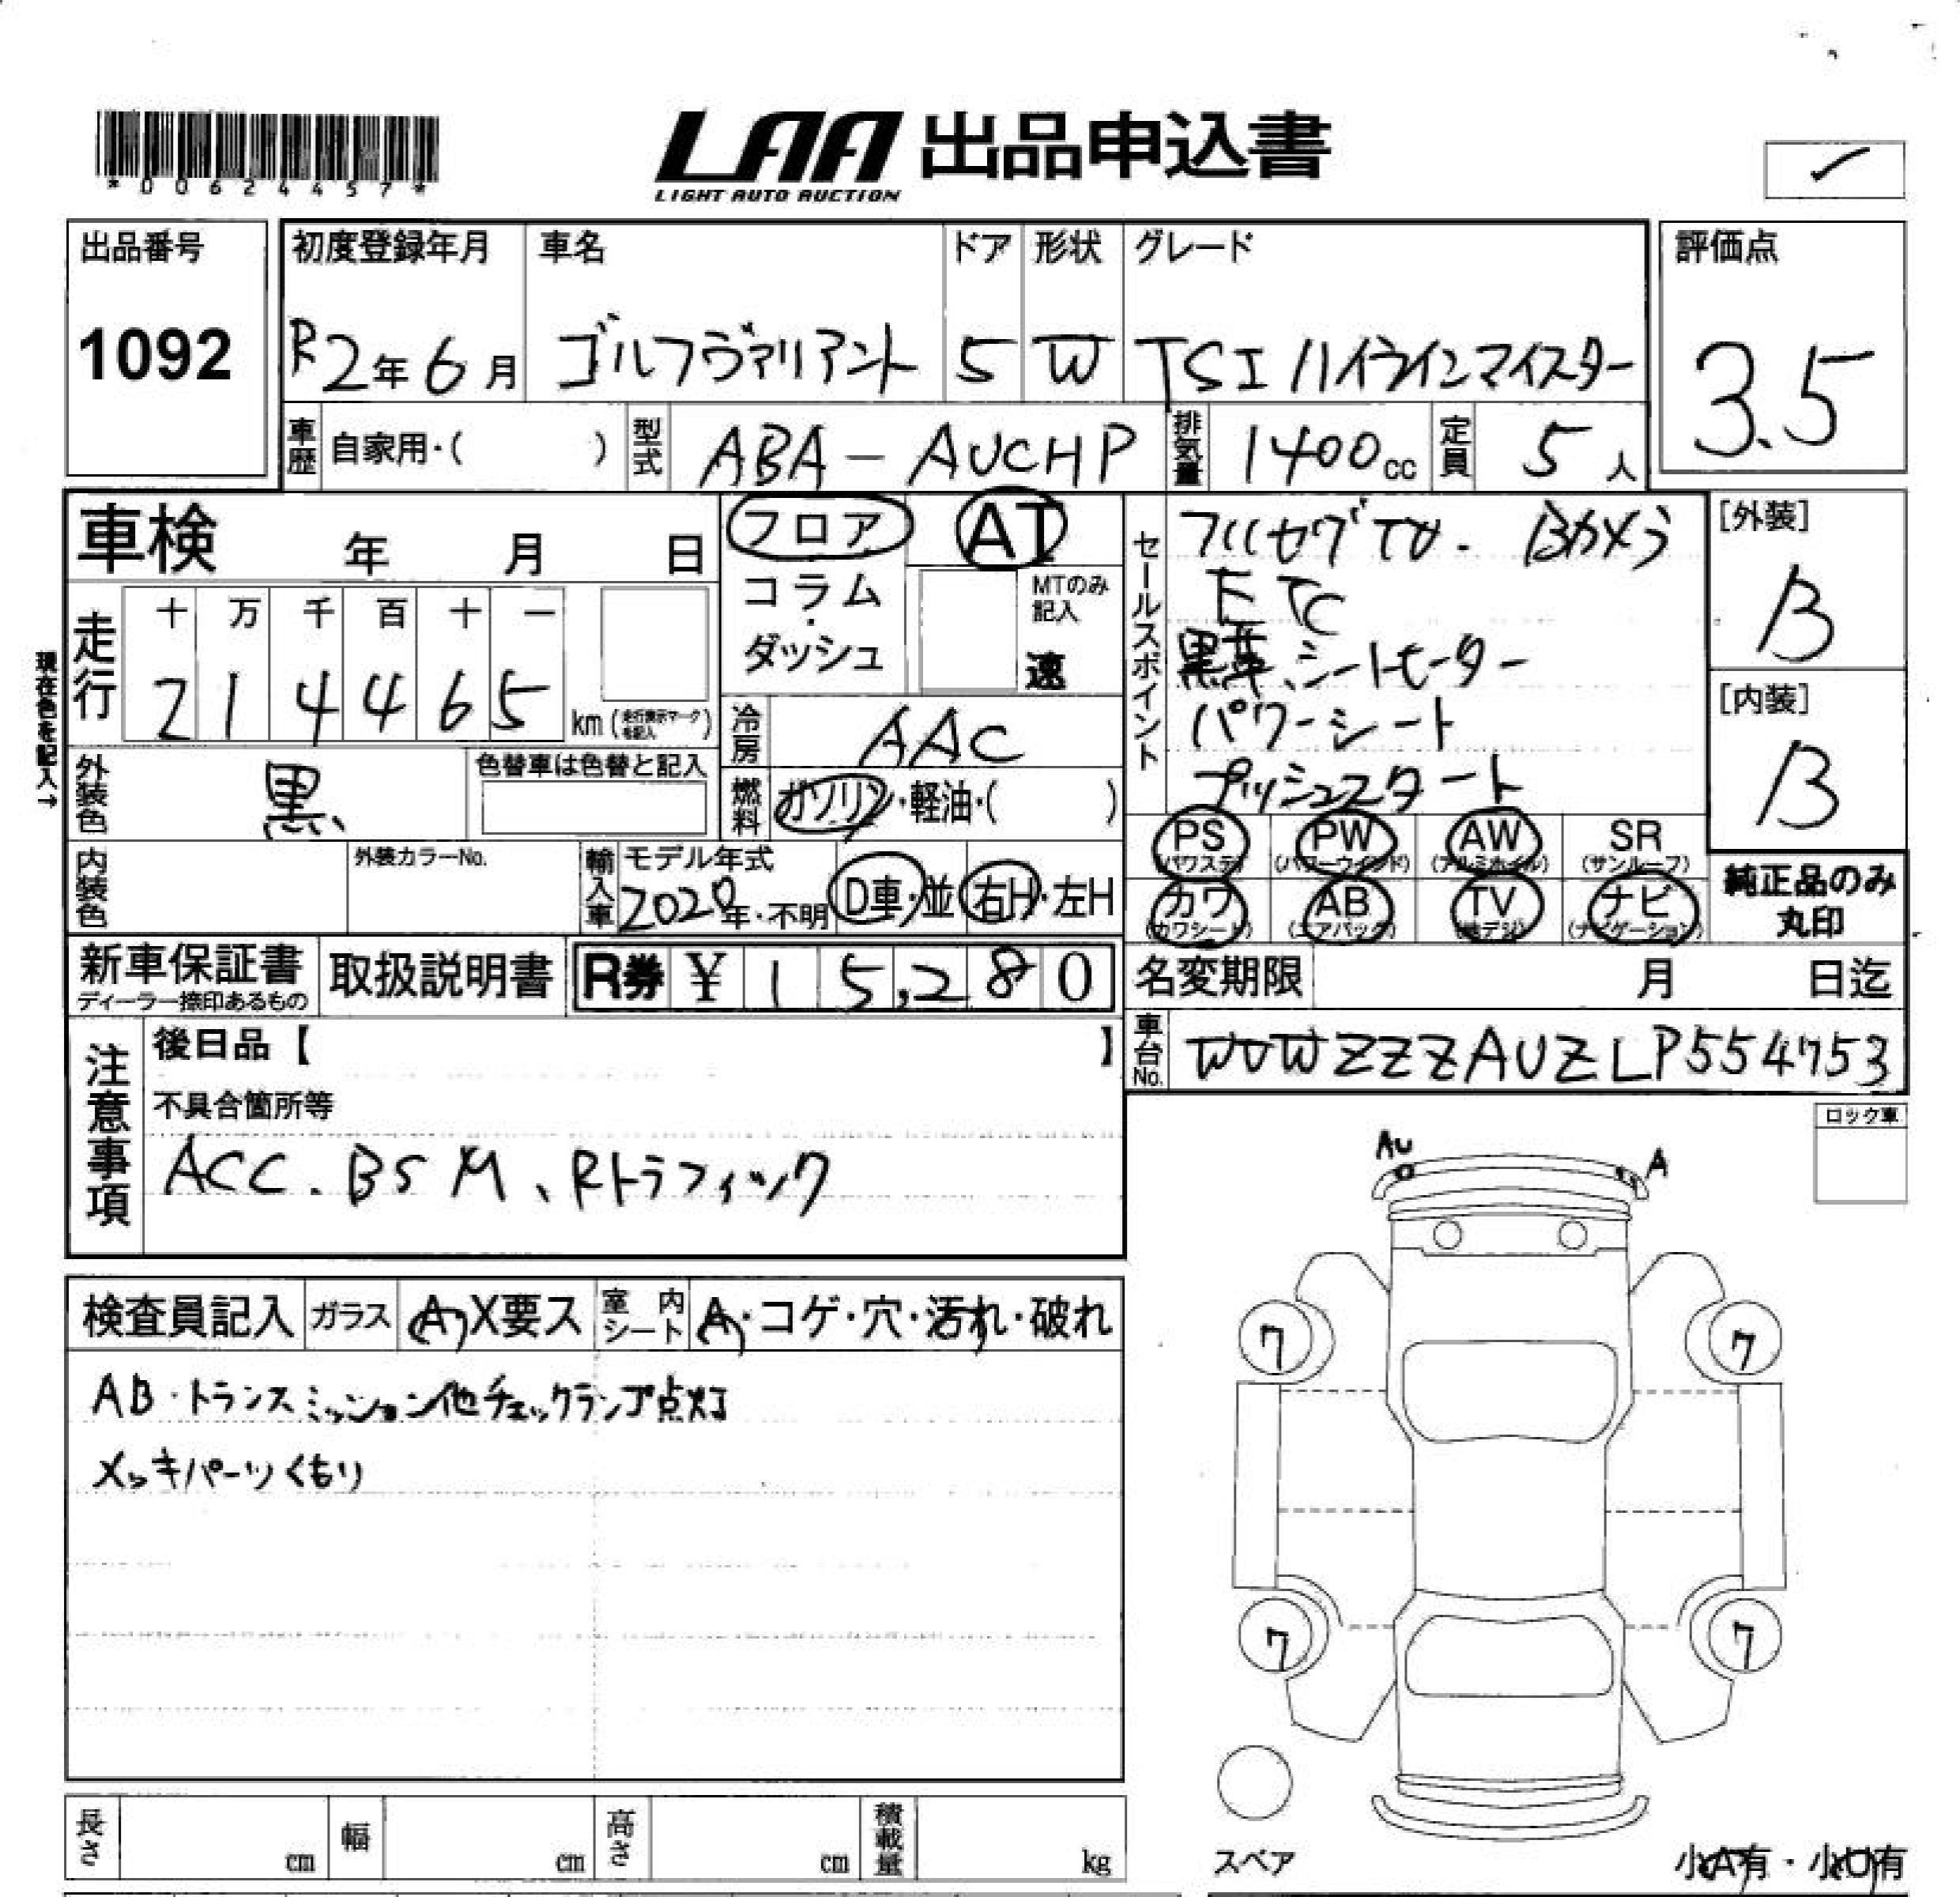 *00624457*
LAA 出品申込書
LIGHT AUTO AUCTION
出品番号
1092
初度登録年月
R2年6月
車名
ゴルフヴァリアント
ドア
5
形状
W
グレード
TSI ハイラインマイスター
評価点
3.5
車歴 自家用・( )
型式 ABA-AUCHP
排気量 1400cc
定員 5人
車検 年 月 日
フロア AT
コラム・ダッシュ
MTのみ記入
速
走行
十 万 千 百 十 一
2 1 4 4 6 5 km (走行表示マークを記入)
現在色を記入→
冷房 AAC
外装色 黒
色替車は色替と記入
燃料 ガソリン・軽油・( )
内装色
外装カラーNo.
輸入車
モデル年式
2020年・不明
D車・並 右H・左H
セールスポイント
フルセグTV. Bカメラ
ETC
黒革、シートヒーター
パワーシート
プッシュスタート
[外装]
B
[内装]
B
PS (パワステ)
PW (パワーウインド)
AW (アルミホイル)
SR (サンルーフ)
カワ (カワシート)
AB (エアバック)
TV (地デジ)
ナビ (ナビゲーション)
純正品のみ
丸印
新車保証書
ディーラー捺印あるもの
取扱説明書
R券 ¥ 15,280
名変期限 月 日迄
車台No. WVWZZZAUZLP554753
注意事項
後日品【 】
不具合箇所等
ACC. BSM、Rトラフィック
ロック車
検査員記入
ガラス A X要ス
室内シート A・コゲ・穴・汚れ・破れ
AB・トランスミッション他チェックランプ点灯
メッキパーツくもり
AU
A
7
7
7
7
スペア
小A有・小U有
長さ cm
幅 cm
高さ cm
積載量 kg